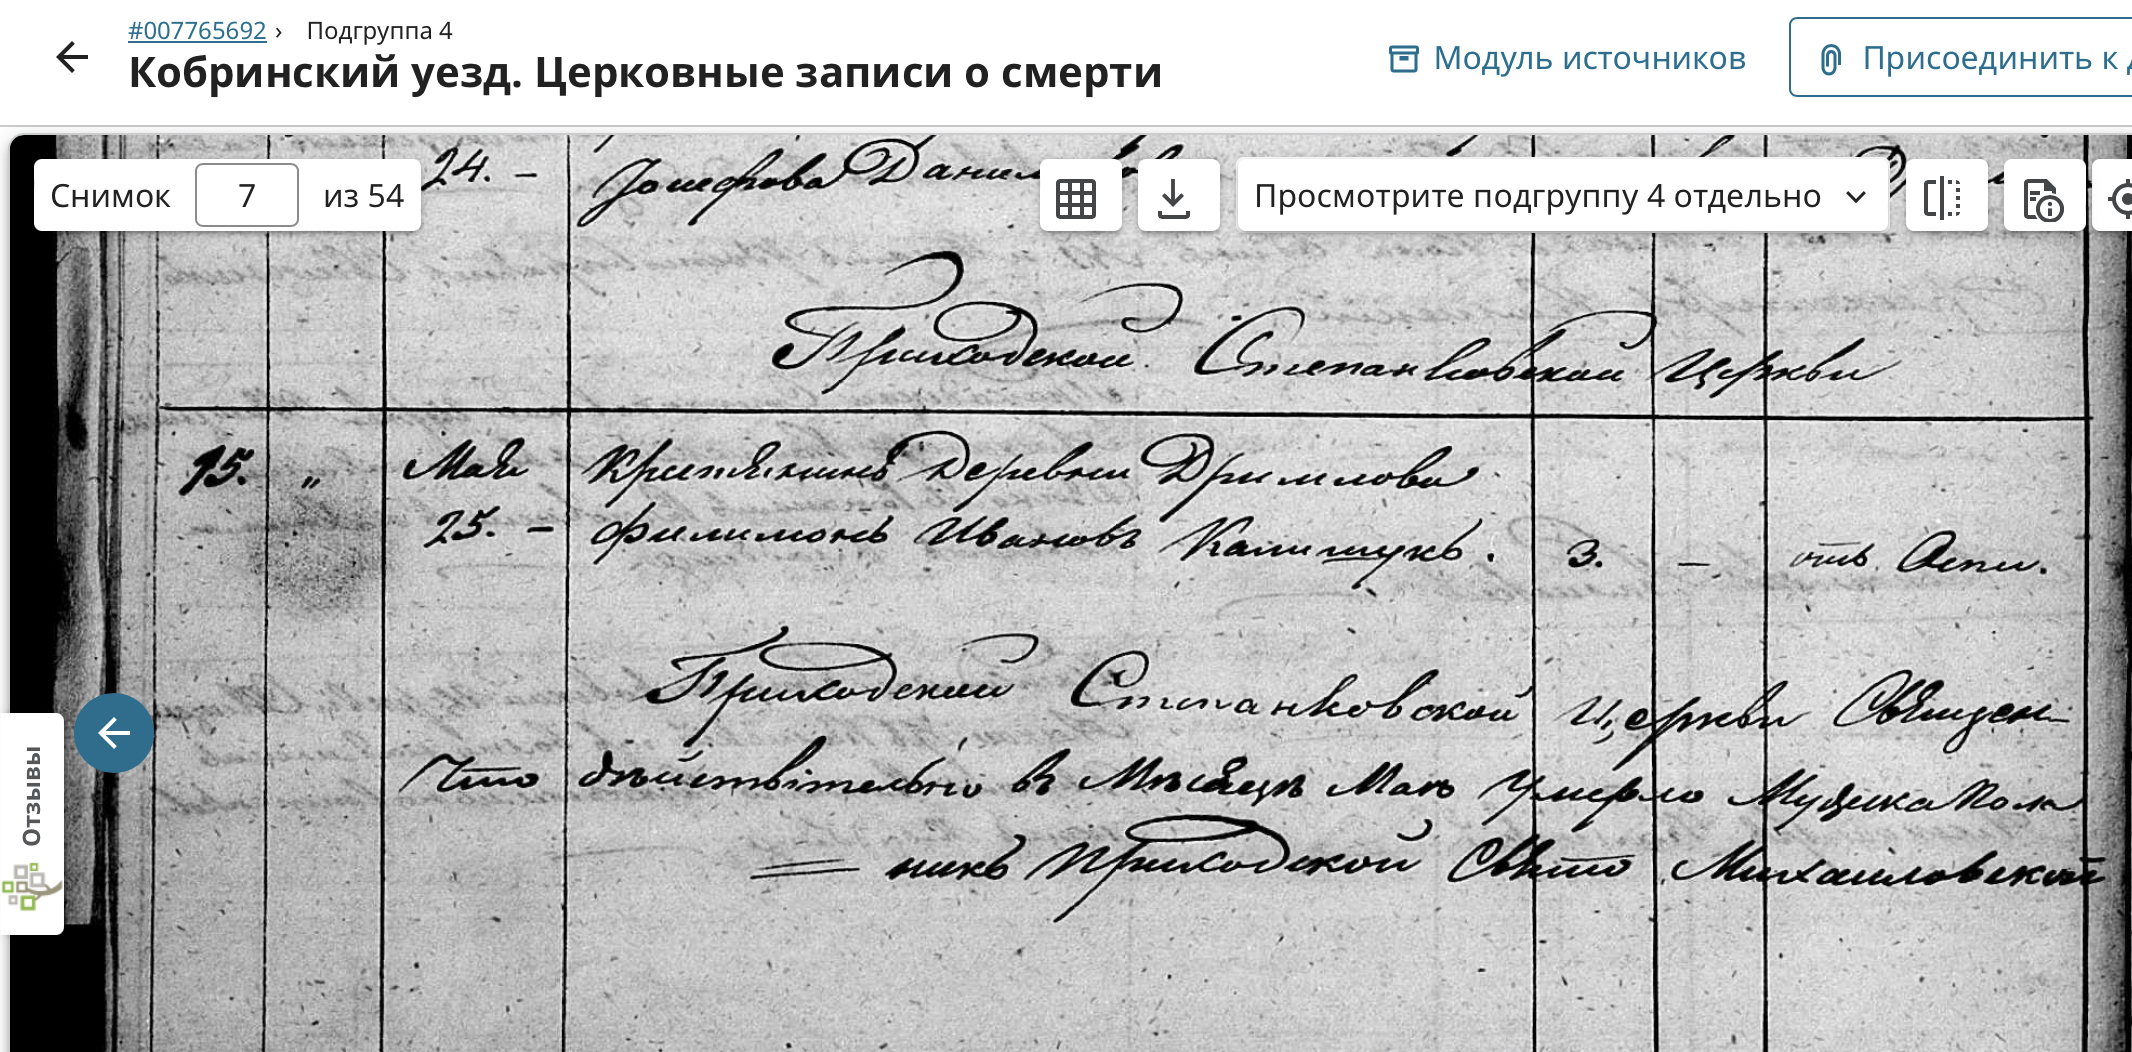 #007765692 › Подгруппа 4
Кобринский уезд. Церковные записи о смерти
Модуль источников
Присоединить к
Снимок 7 из 54
Просмотрите подгруппу 4 отдельно
24. –
Приходской Степанковской Церкви
15. „ Мая Крестьянинъ Деревни
25. – Филимонъ Ивановъ 3. – отъ Оспи.
Приходской Степанковской Церкви Священ-
Что действительно въ Месяце Мае Умерло Мужеска Пола
никъ Приходской Свято Михаиловской
Отзывы